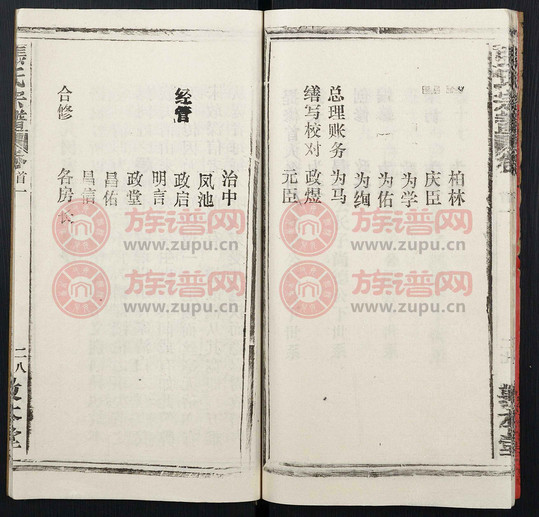 柏林
庆臣
为学
为佑
为绚
总理账务 为马
缮写校对 政煜
元臣
治中
凤池
经管 政启
明言
政堂
昌佑
昌信
合修 各房长
首一
二八
敦本堂
族谱网
www.zupu.cn
族谱网
www.zupu.cn
族谱网
www.zupu.cn
族谱网
www.zupu.cn